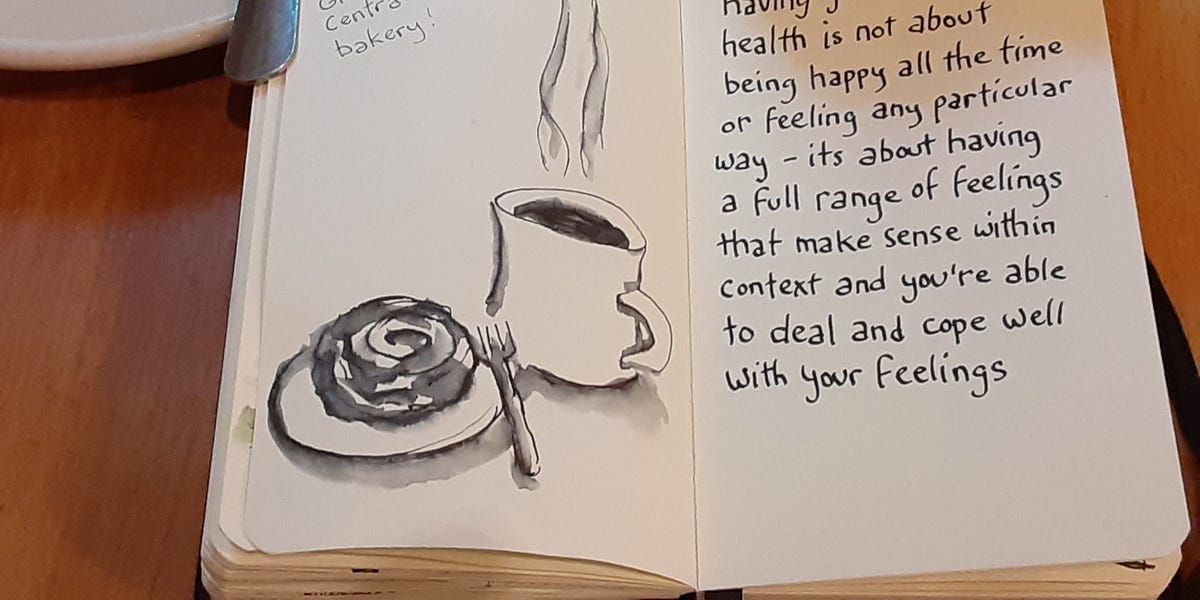 Centra
bakery!
having
health is not about
being happy all the time
or feeling any particular
way - its about having
a full range of feelings
that make sense within
context and you're able
to deal and cope well
with your feelings